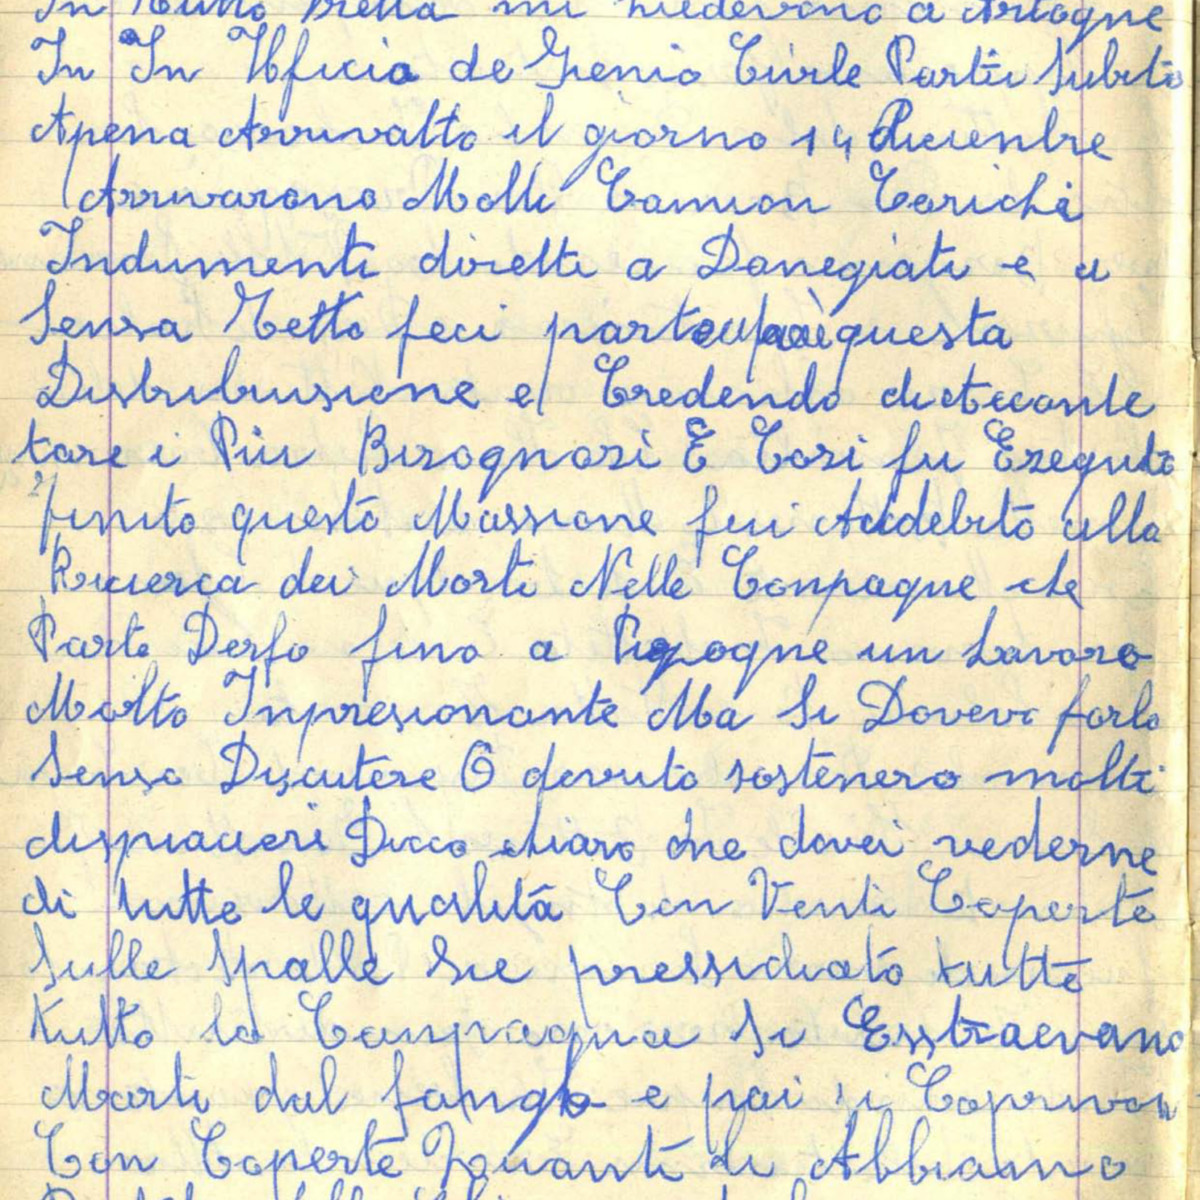 In tutto fretta mi chiedevano a Artogne
In In Uficio de Genio Civile Partii Subito
Apena Arruvatto il giorno 14 Dicienbre
Arrivarono Molti Camion Carichi
Indumenti diretti a Danegiati e a
Senza Tetto feci parte questa
Distribuisione e Credendo di
tare i Piu Bisognosi E Cosi fu Eseguto
finito questo Missione fui Addebito alla
Ricierca dei Morti Nelle Conpagne che
Parte Derfo fino a Pisogne un Lavoro
Molto Inpresionante Ma Si Doveva farlo
Senza Discutere O dovuto sostenero molti
dispiacieri Dicco chiaro che dovei vederne
di tutte le qualità Con Venti Coperte
Sulle Spalle Sie pressidiato tutte
tutto la Canpagna Si Esstraevano
Morti dal fango e poi si Coprivan
Con Coperte Quanti di Abbiamo